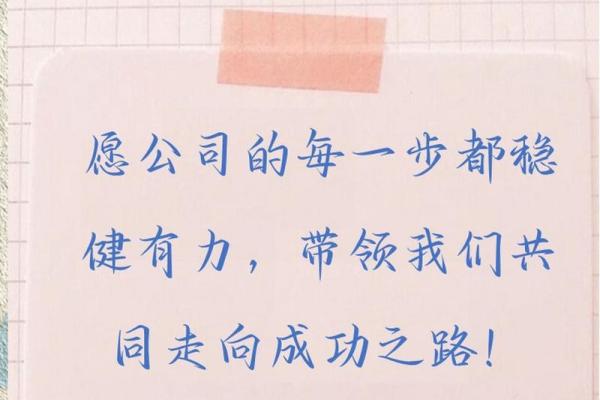 愿公司的每一步都稳
健有力，带领我们共
同走向成功之路！